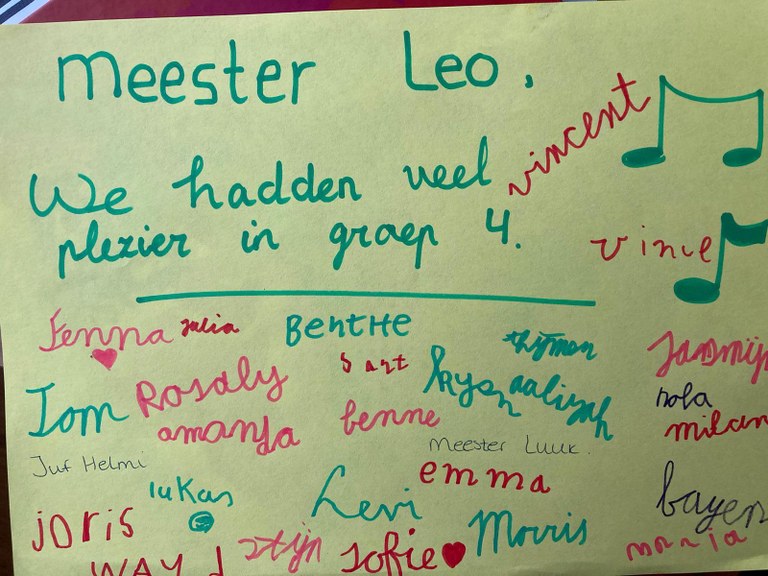 Meester Leo.
We hadden veel
plezier in groep 4.
vincent
vince
Fenna julia BentHe thymen Jasmijn
Tom Rosaly Bart kysen aaliyah nola
amanda benne milan
Juf Helmi Meester Luuk.
lukas Levi emma bayen
joris stijn sofie Morris